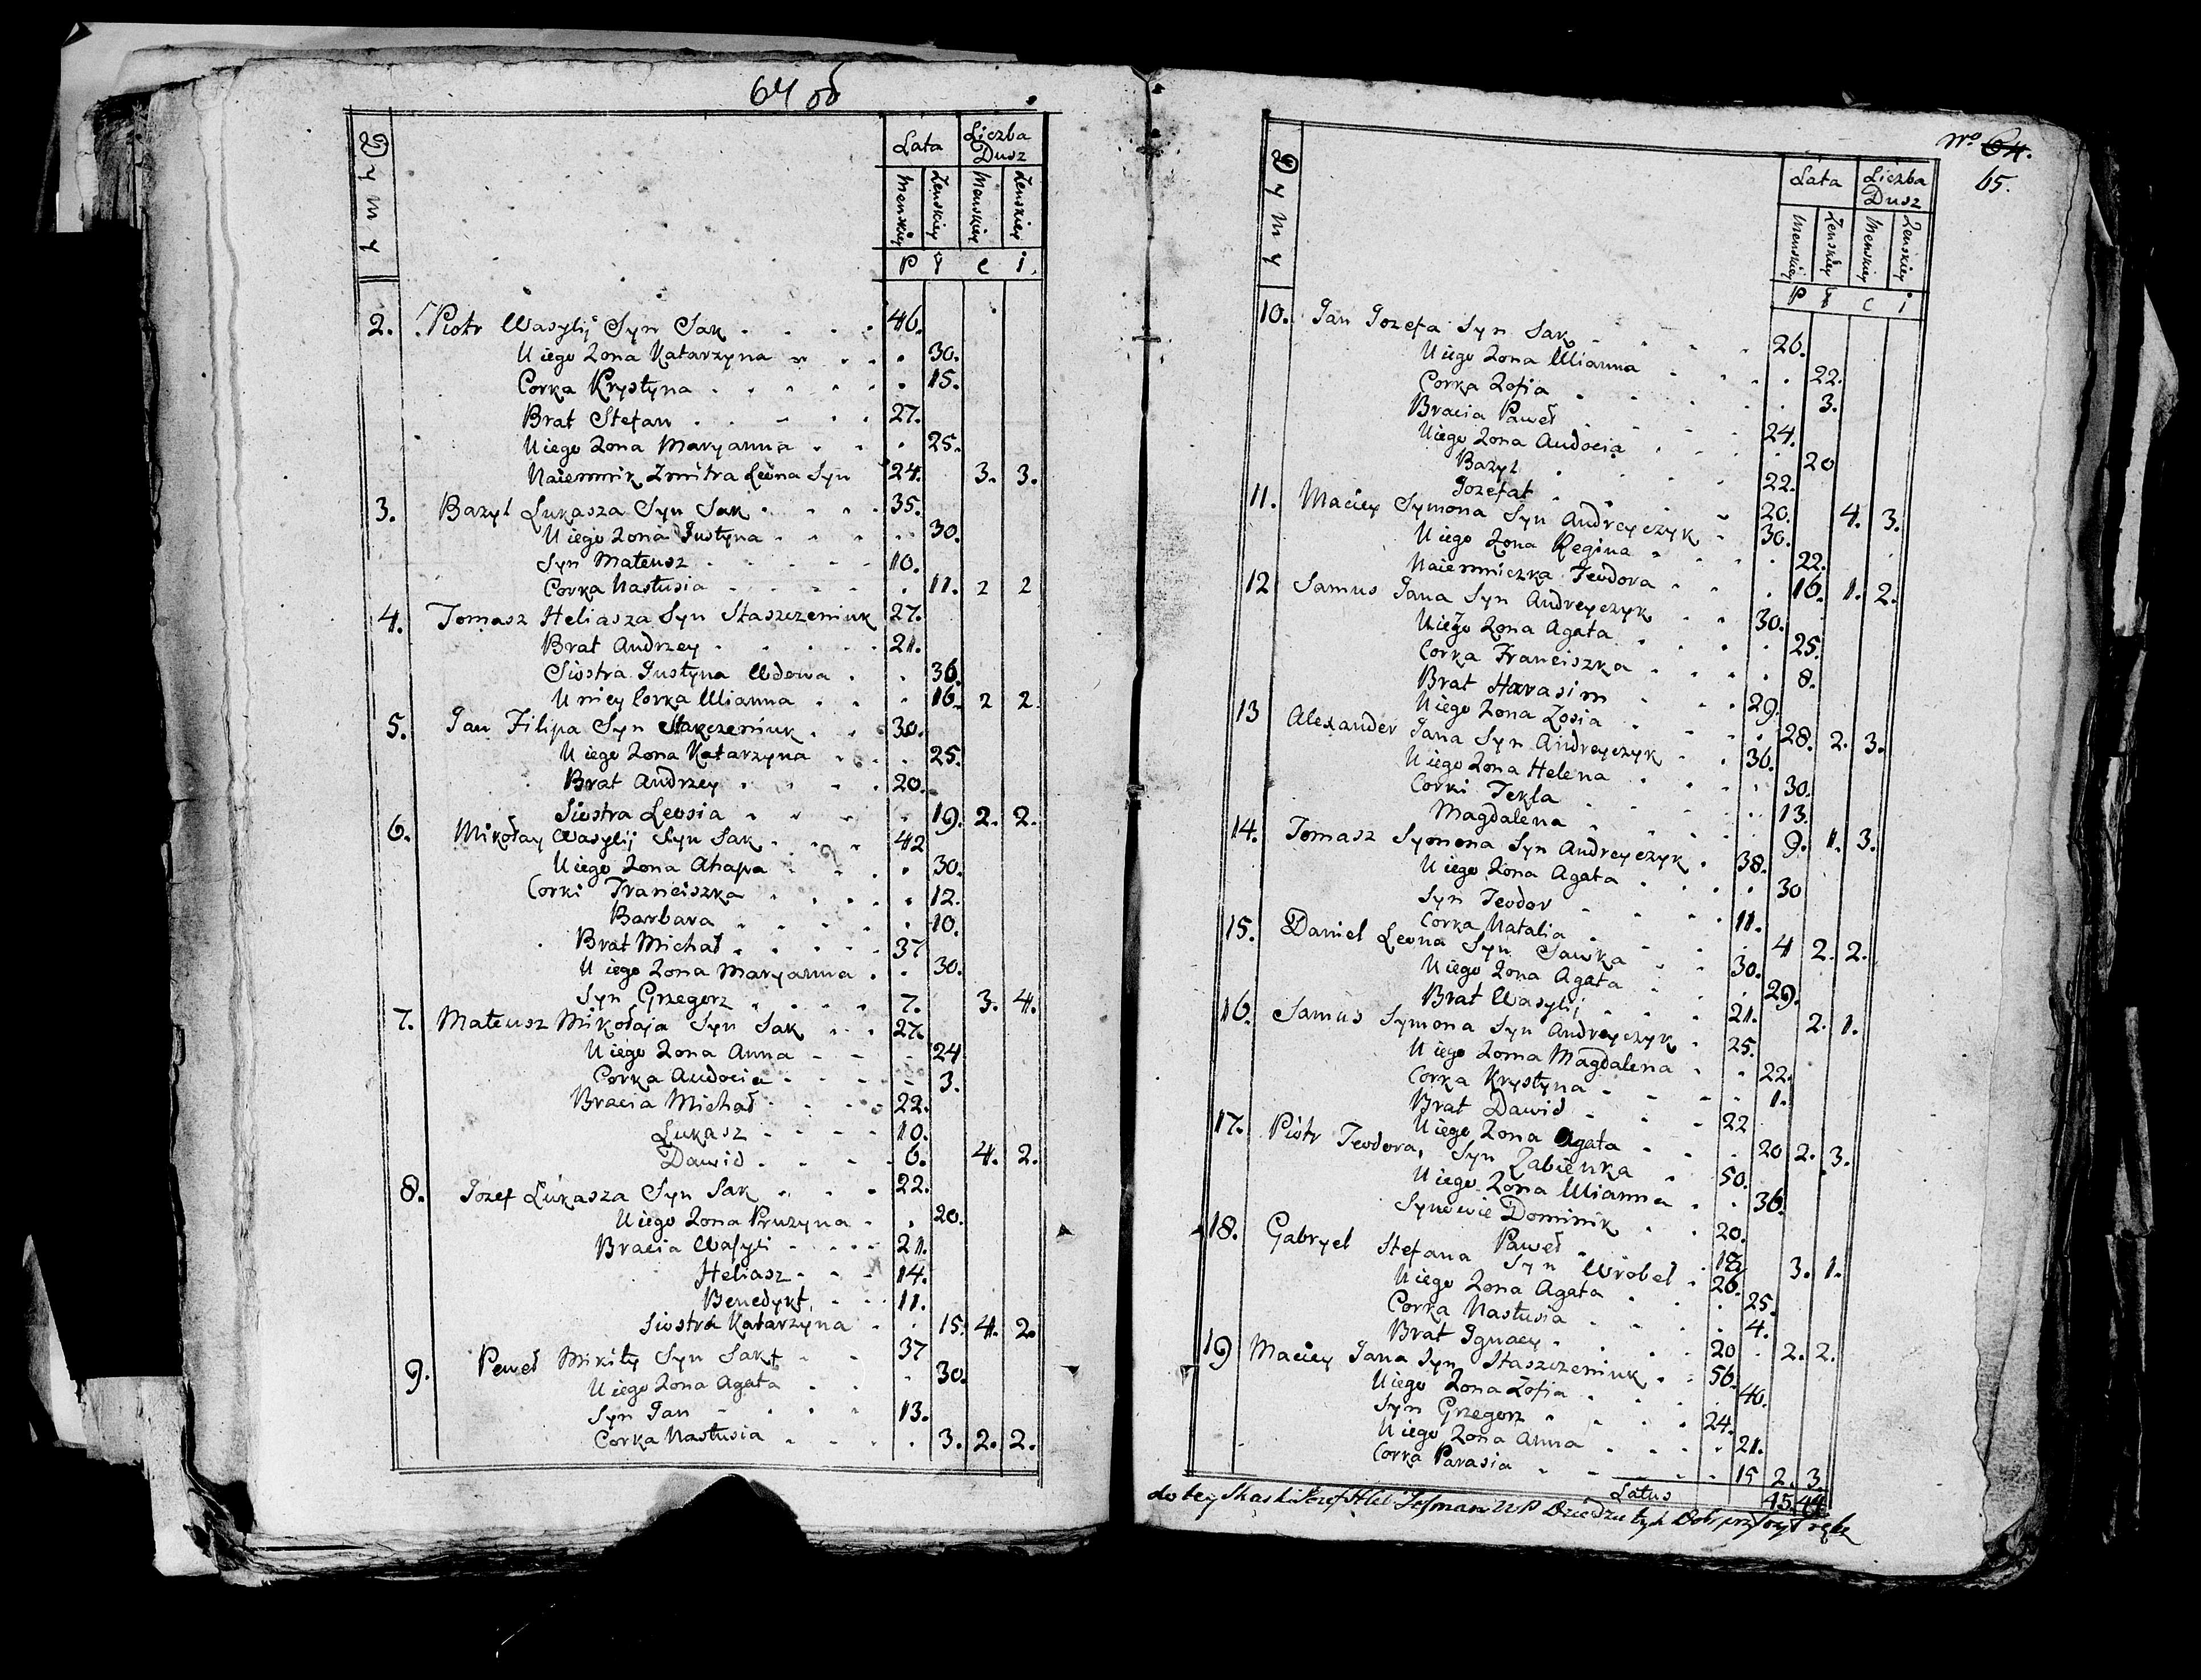 64 об
Dymy
Lata Liczba Dusz
Męnskiey Zenskiey Męnskiey Zenskiey
P ł c i
2. Piotr Wasylij Syn Sak 46.
U iego Zona Katarzyna 30.
Corka Krystyna 15.
Brat Stefan 27.
U iego Zona Maryanna 25.
Naiemnik Zmitra Leona Syn 24. 3. 3.
3. Bazyl Lukasza Syn Sak 35.
U iego Zona Justyna 30.
Syn Mateusz 10.
Corka Nastusia 11. 2 2
4. Tomasz Heliasza Syn Staszczeniuk 27.
Brat Andrzey 21.
Siostra Justyna Wdowa 36.
U niey Corka Ulianna 16. 2 2.
5. Jan Filipa Syn 30.
U iego Zona Katarzyna 25.
Brat Andrzey 20.
Siostra Lewsia 19. 2. 2.
6. Mikołay Wasylij Syn Sak 42
U iego Zona Ahapa 30.
Corki Franciszka 12.
Barbara 10.
Brat Michał 37
U iego Zona Maryanna 30.
Syn Grzegorz 7. 3. 4.
7. Mateusz Mikołaja Syn Sak 27.
U iego Zona Anna 24
Corka Audocia 3.
Bracia Michał 22.
Łukasz 10.
Dawid 6. 4. 2.
8. Jozef Łukasza Syn Sak 22.
U iego Zona Pruzyna 20.
Bracia Wasyli 21.
Heliasz 14.
Benedykt 11.
Siostra Katarzyna 15. 4. 2.
9. Paweł Mikity Syn Sak 37
U iego Zona Agata 30.
Syn Jan 13.
Corka Nastusia 3. 2. 2.
No 64.
65.
Dymy
Lata Liczba Dusz
Męnskiey Zenskiey Męnskiey Zenskiey
P ł c i
10. Jan Jozefa Syn Sak 26.
U iego Zona Ulianna 22.
Corka Zofia 3.
Bracia Paweł 24.
U iego Zona Audocia 20
Bazyl 22.
Jozefat 20. 4. 3.
11. Maciey Symona Syn Andreyczyk 30.
U iego Zona Regina 22.
Naiemniczka Teodora 16. 1. 2.
12 Samus Jana Syn Andreyczyk 30.
U iego Zona Agata 25.
Corka Franciszka 8.
Brat Harasim 29.
U iego Zona Zosia 28. 2. 3.
13 Alexander Jana Syn Andreyczyk 36.
U iego Zona Helena 30.
Corki Tekla 13.
Magdalena 9. 1. 3.
14. Tomasz Symona Syn Andreyczyk 38.
U iego Zona Agata 30
Syn Teodor 11.
Corka Natalia 4 2. 2.
15. Daniel Leona Syn Sawka 30.
U iego Zona Agata 29.
Brat Wasylij 21. 2. 1.
16. Samus Symona Syn Andreyczyk 25.
U iego Zona Magdalena 22.
Corka Krystyna 1.
Brat Dawid 22
U iego Zona Agata 20 2. 3.
17. Piotr Teodora, Syn Zabienka 50.
U iego Zona Ulianna 36.
Synowie Dominik 20.
Paweł 18 3. 1.
18. Gabryel Stefana Syn Wrobel 26.
U iego Zona Agata 25.
Corka Nastusia 4.
Brat Ignacy 20 2. 2.
19 Maciey Jana Syn Staszczeniuk 56.
U iego Zona Zofia 40.
Syn Grzegorz 24.
U iego Zona Anna 21.
Corka Parasia 15 2. 3
Latus 45. 44
do tey Skaski Jozef